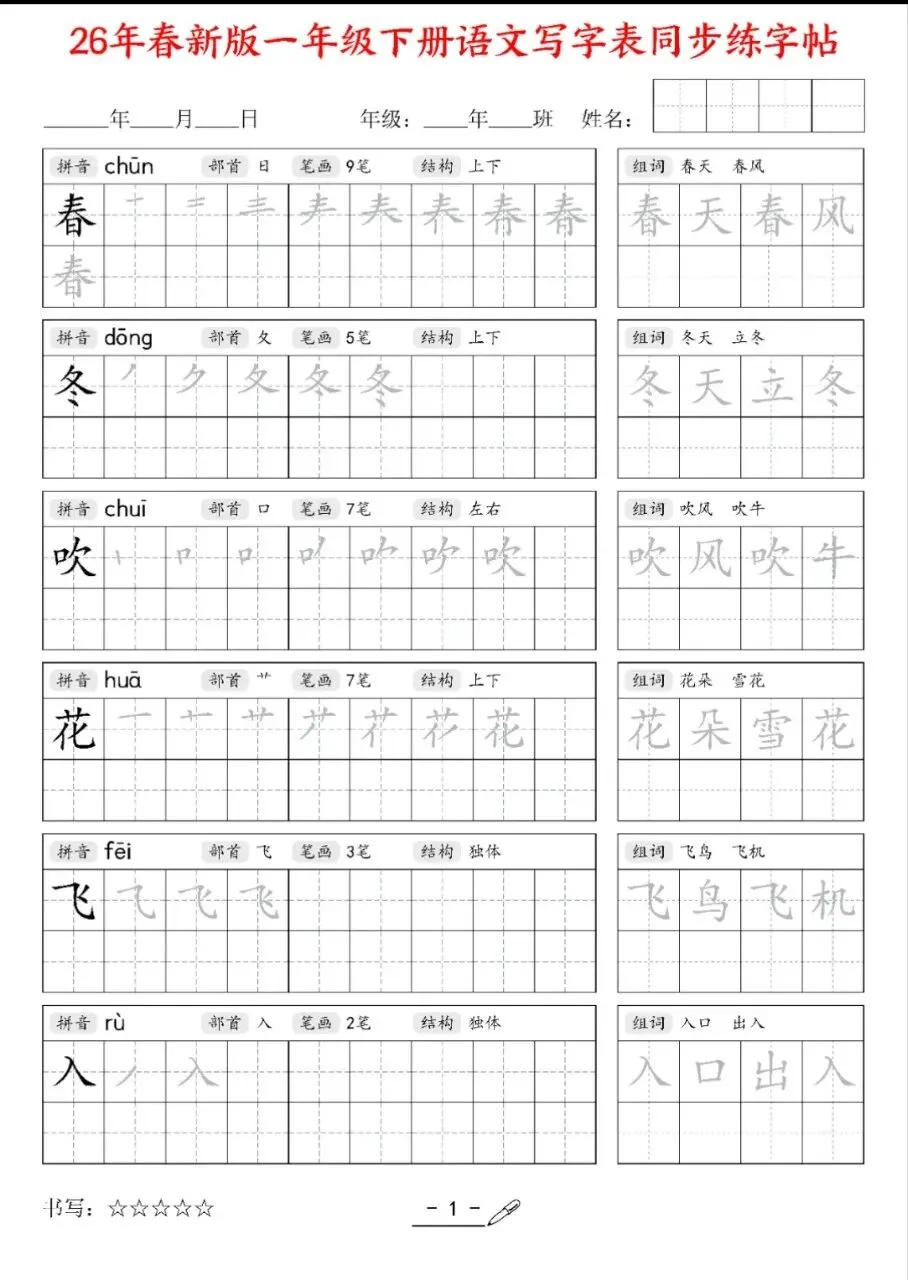 26年春新版一年级下册语文写字表同步练字帖
______年____月____日 年级：____年____班 姓名：
拼音 chūn 部首 日 笔画 9笔 结构 上下
组词 春天 春风
春
春天春风
春
拼音 dōng 部首 夂 笔画 5笔 结构 上下
组词 冬天 立冬
冬
冬天立冬
拼音 chuī 部首 口 笔画 7笔 结构 左右
组词 吹风 吹牛
吹
吹风吹牛
拼音 huā 部首 艹 笔画 7笔 结构 上下
组词 花朵 雪花
花
花朵雪花
拼音 fēi 部首 飞 笔画 3笔 结构 独体
组词 飞鸟 飞机
飞
飞鸟飞机
拼音 rù 部首 入 笔画 2笔 结构 独体
组词 入口 出入
入
入口出入
书写：☆☆☆☆☆
- 1 -